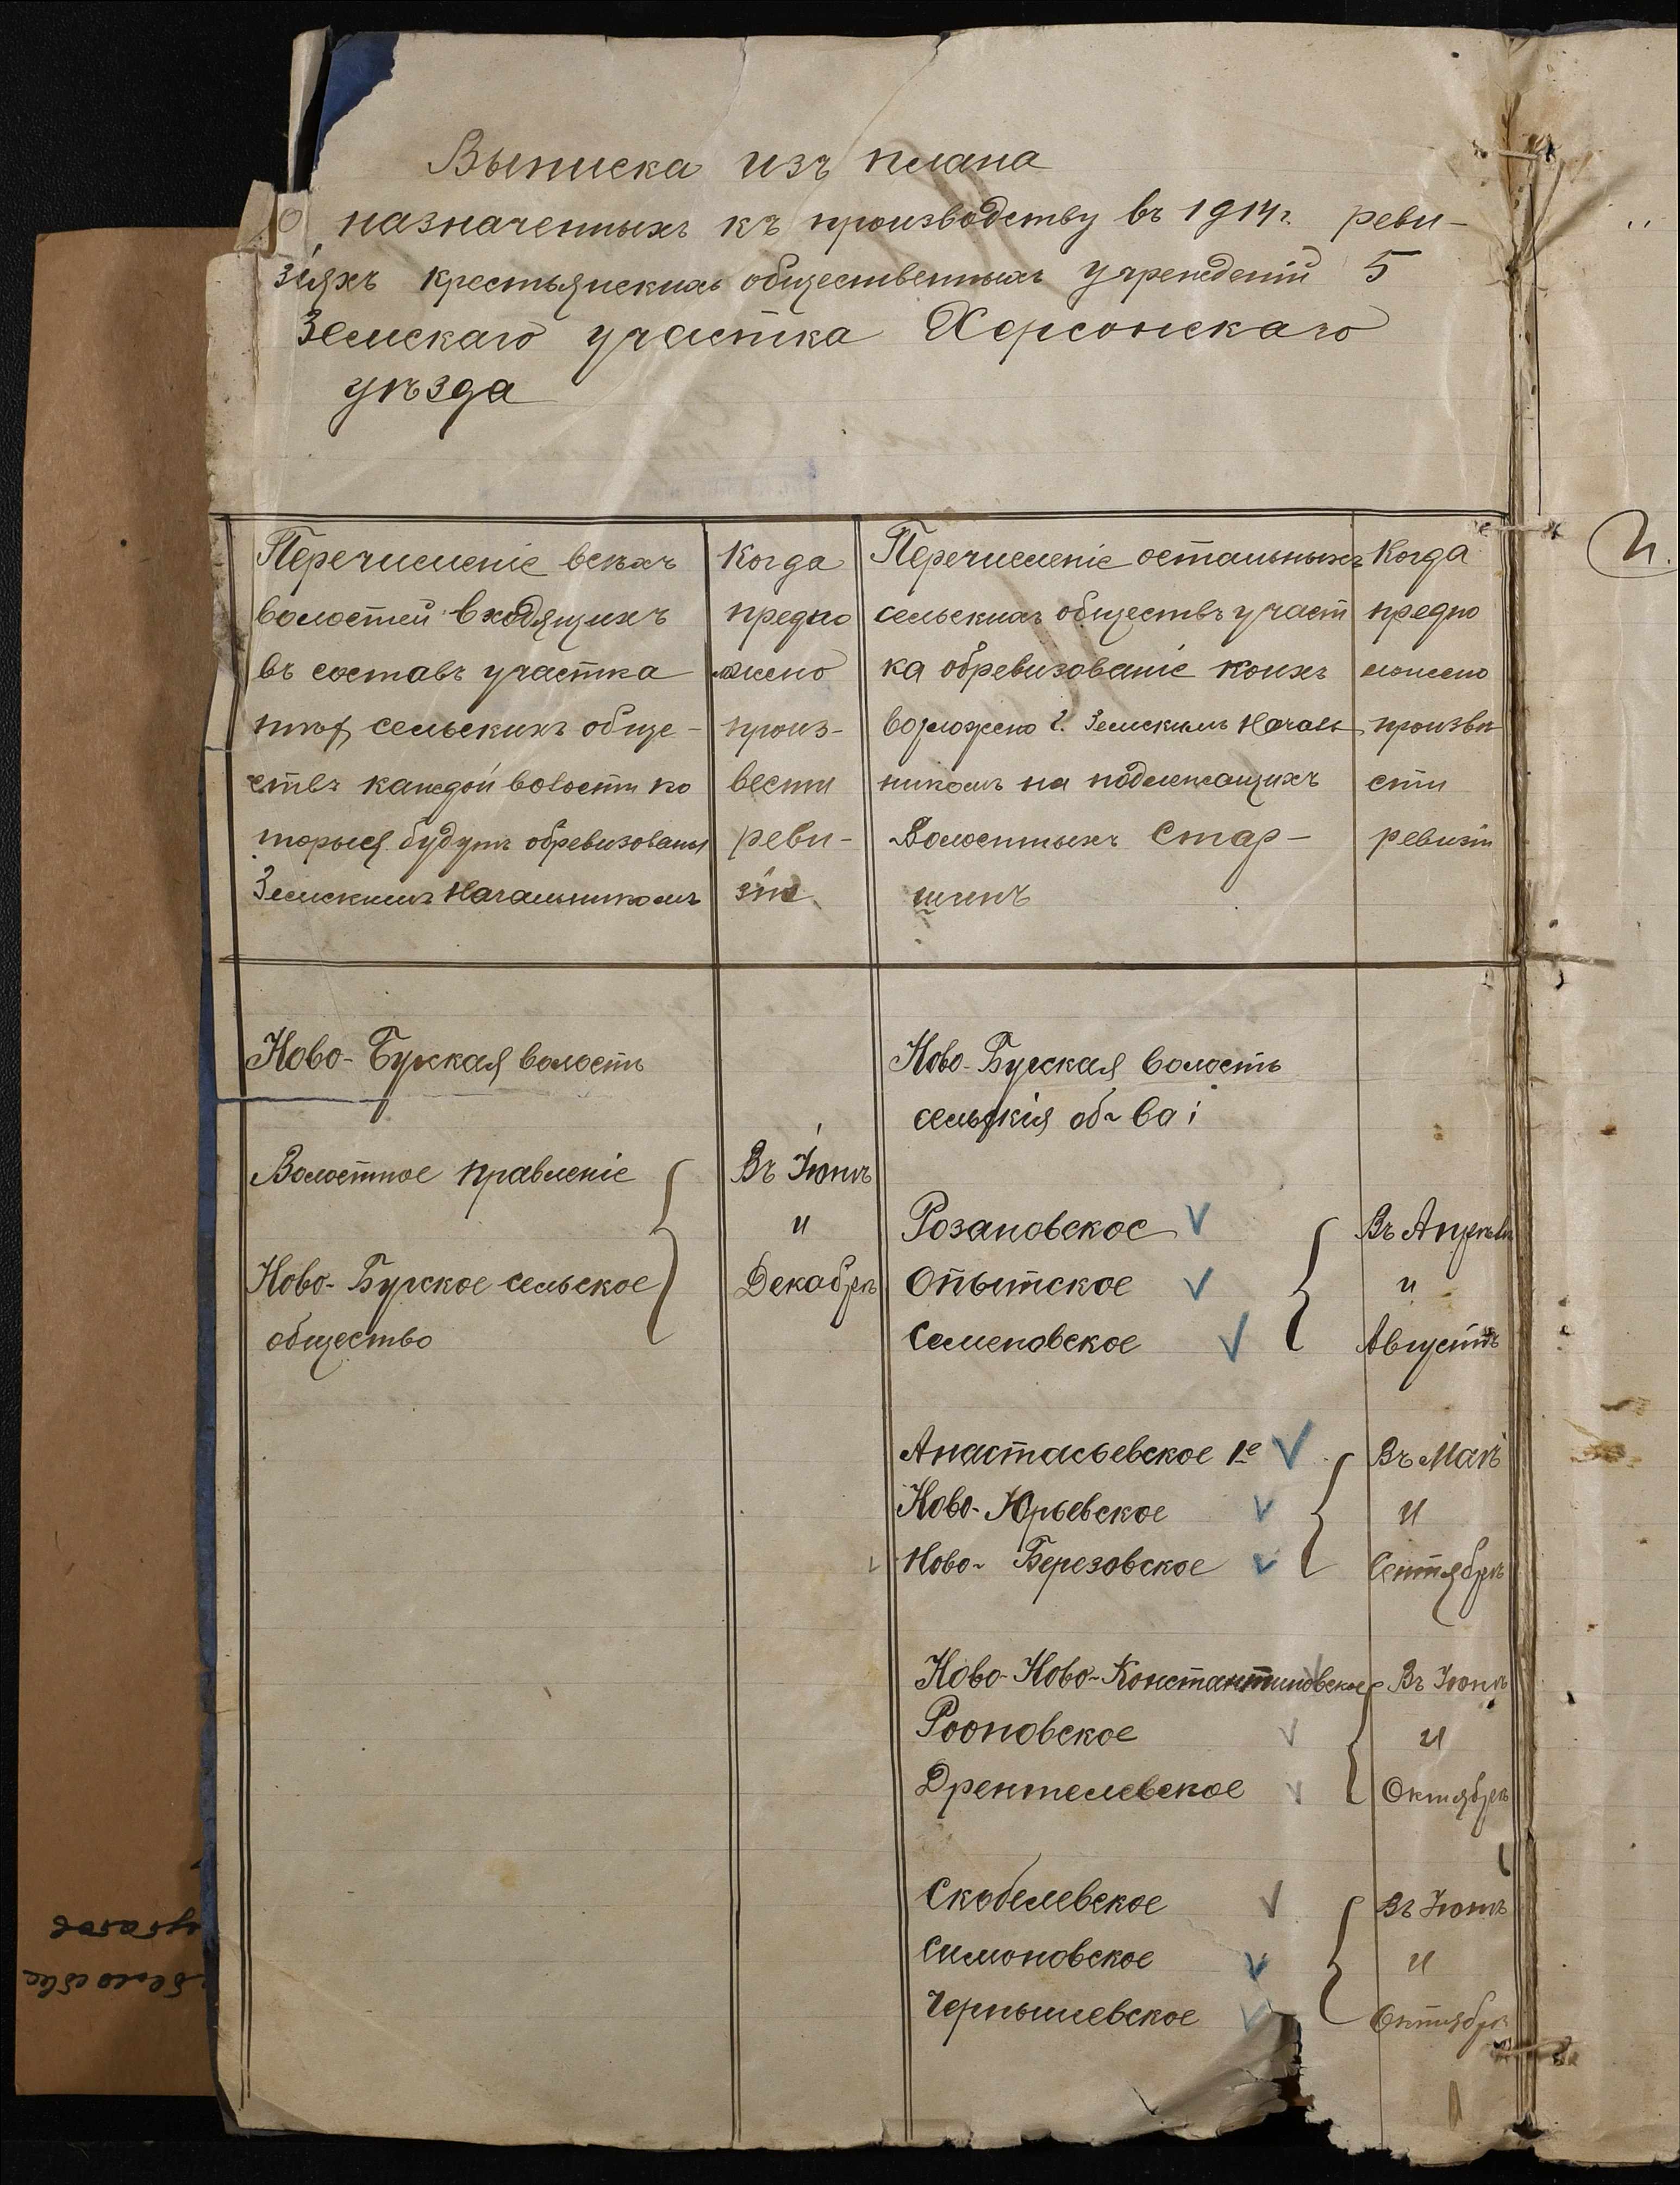 Выписка изъ плана
о назначенныхъ къ производству въ 1914 г. реви-
зіяхъ крестьянскихъ общественныхъ учрежденій 5
Земскаго участка Херсонскаго
уѣзда
Перечисленіе всѣхъ
волостей входящихъ
въ составъ участка
сельскихъ обще-
ствъ каждой волости ко
торыя будутъ обревизованы
Земскимъ Начальникомъ
Когда
предпо
ложено
произ-
вести
реви-
зію
Перечисленіе остальныхъ
сельскихъ обществъ участ
ка обревизованіе коихъ
возложено г. Земскимъ Началь
никомъ на подлежащихъ
Волостныхъ Стар-
шинъ
Когда
предпо
ложено
произве
сти
ревизіи
Ново-Бугская волость
Волостное правленіе
Ново-Бугское сельское
общество
Въ Іюнѣ
и
Декабрѣ
Ново-Бугская волость
сельскія об-ва:
Розановское
Опытское
Семеновское
Въ Апрѣлѣ
и
Августѣ
Анастасьевское 1е
Ново-Юрьевское
Ново-Березовское
Въ Маѣ
и
Сентябрѣ
Ново-Ново-Константиновское
Рооповское
Дрентелевское
Въ Іюнѣ
и
Октябрѣ
Скобелевское
Симоновское
Чернышевское
Въ Іюнѣ
и
Октябрѣ